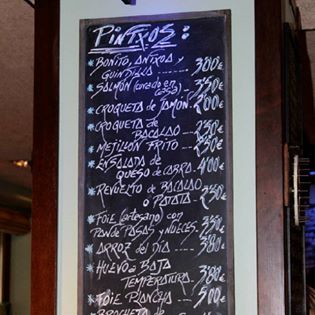 PINTXOS:
* BONITO, ANTXOA y
GUINDILLA ------ 3'00€
* SALMÓN (curado en
casa) 3'50€
* CROQUETA de JAMÓN. 2'00€
* CROQUETA de
BACALAO --- 2'50€
* MEJILLÓN FRITO -- 2'50€
* ENSALADA de
QUESO de CABRA. 4'00€
* REVUELTO de BACALAO
o PATATA -- 3'50€
* FOIE (artesano) con
PAN de PASAS y NUECES. 3'50€
* ARROZ del DÍA ---- 3'80€
* HUEVO a BAJA
TEMPERATURA.. 3'80€
* FOIE PLANCHA --- 5'00€
* BROCHETA de